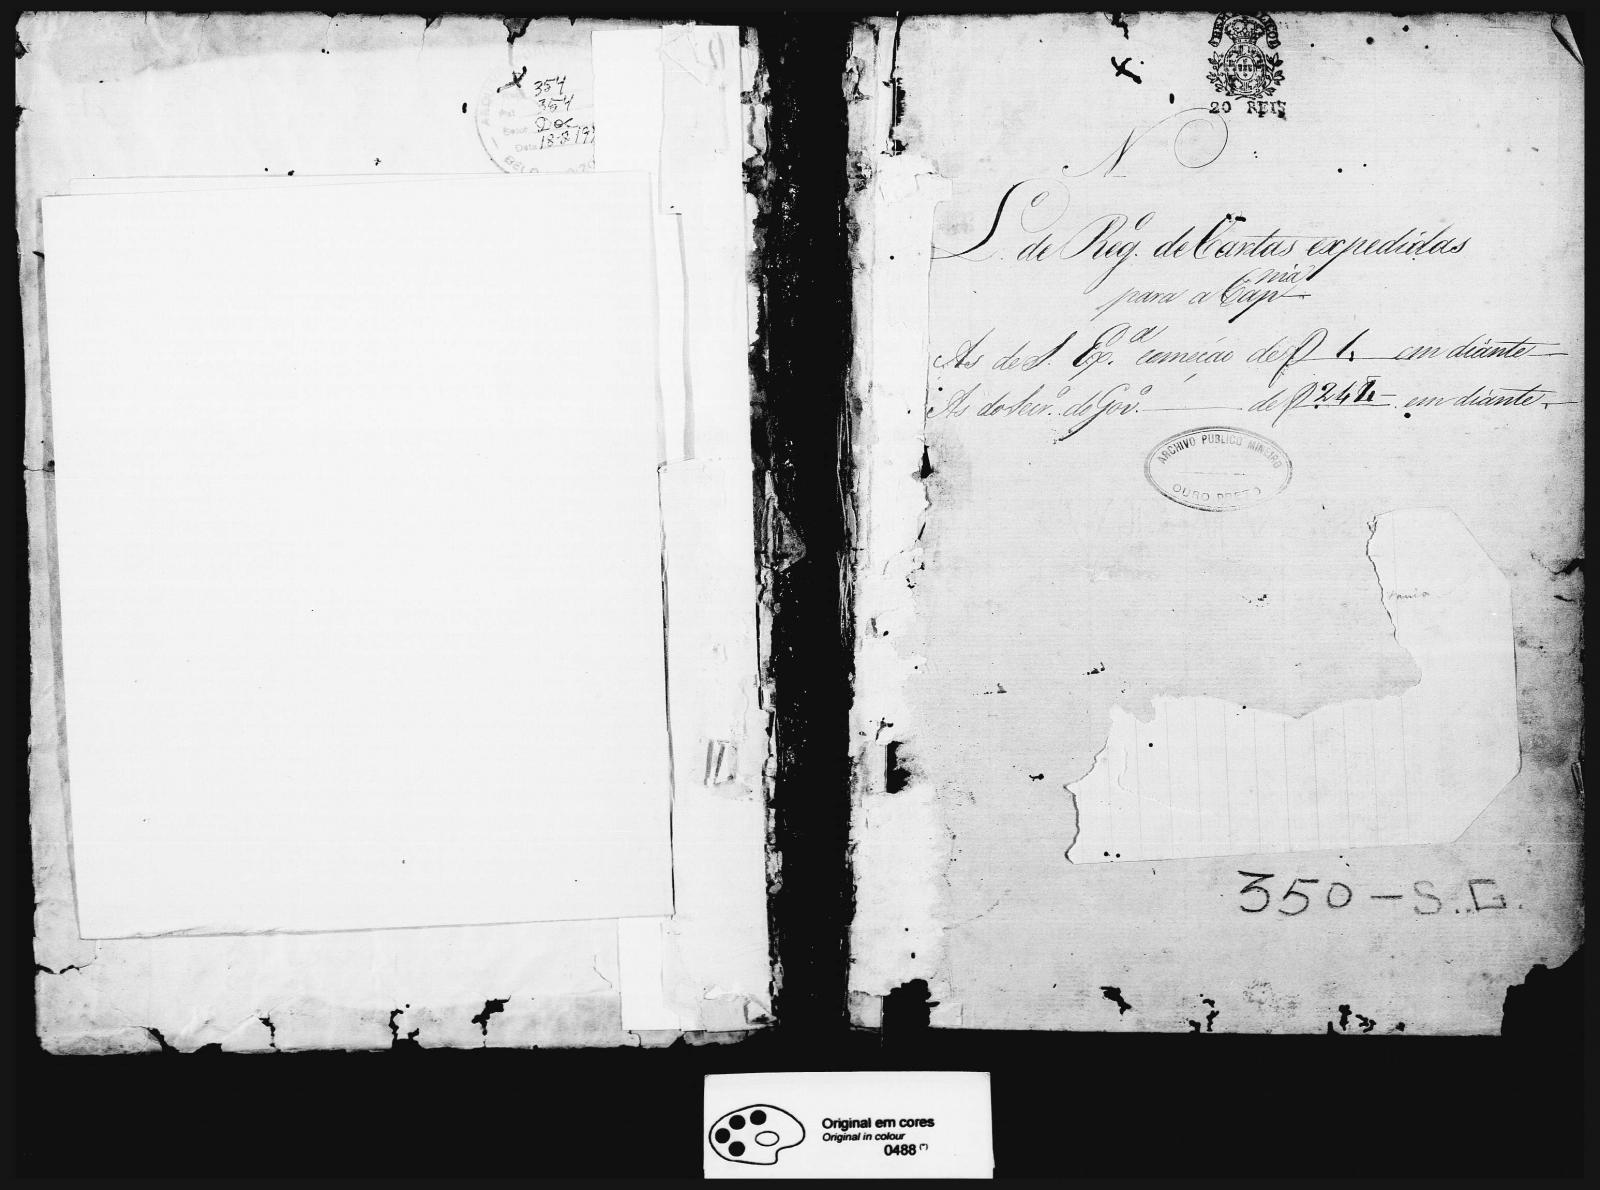 354
354
Doc
Data 18-2-19
BELO
20 REIS
N.º
L.º de Reg.º de Cartas expedidas
para a Cap.nia
As de S. Ex.ª começão de f 1. em diante
As do Secr.º do Gov.º de f 241. em diante.
ARCHIVO PUBLICO MINEIRO
OURO PRETO
350-S.G.
Original em cores
Original in colour
0488 (*)